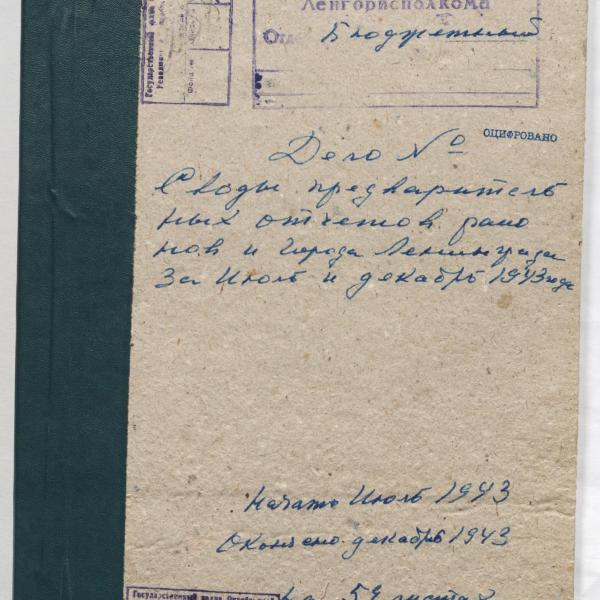 Ленгорисполкома
Бюджетный
Государственный
ОЦИФРОВАНО
Дело №
Своды предваритель
ных отчетов райо
нов и города Ленинграда
за Июль и декабрь 1943 года
Начато Июль 1943
Окончено декабрь 1943
на 59 листах
Государственный архив Октябрьской